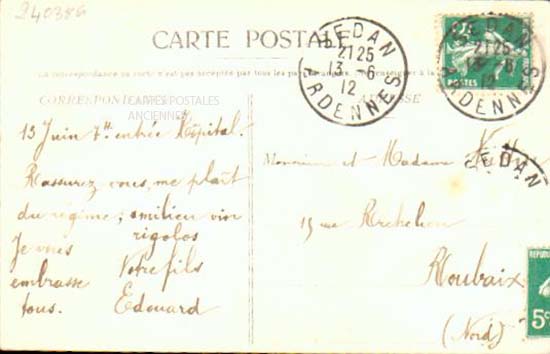 240386
CARTE POSTALE
SEDAN
21 25
13-6
12
ARDENNES
SEDAN
21 25
12
ARDENNES
POSTES
La correspondance au recto n'est pas acceptée par tous les pays étrangers
CORRESPONDANCE
ADRESSE
CARTES POSTALES
ANCIENNES
13 Juin 7h entrée Hôpital.
Rassurez vous, me plaît
du régime; milieu
rigolos
Je vous
embrasse
tous.
Votre fils
Edouard
Monsieur et Madame
SEDAN
15 rue Richelieu
Roubaix
(Nord)
5c